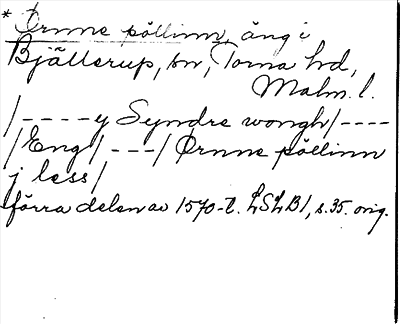 * Ørnne pøllinn, äng i
Bjällerup, sn, Torna hd,
Malm. l.
/----y Syndre wongh/----
/Eng/---/Ørnne pøllinn
j less/
förra delen av 1570-t. LSLB1, s. 35. orig.